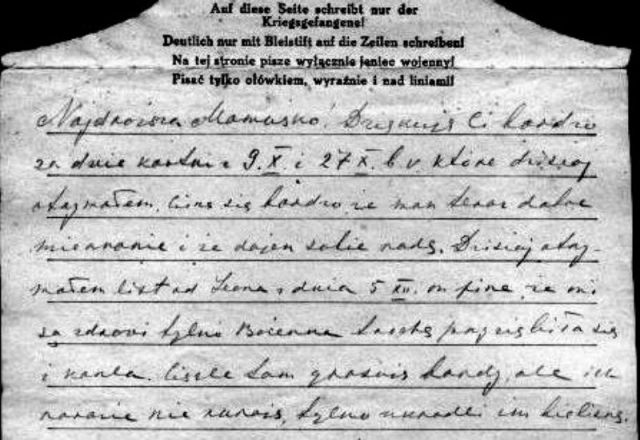 Auf diese Seite schreibt nur der
Kriegsgefangene!
Deutlich nur mit Bleistift auf die Zeilen schreiben!
Na tej stronie pisze wyłącznie jeniec wojenny!
Pisać tylko ołówkiem, wyraźnie i nad liniami!
Najdroższa Mamusko! Dziękuję Ci bardzo
za dwie kartki z 9.X i 27 X. b.r. które dzisiaj
otrzymałem. Cieszę się bardzo, że masz teraz dobre
mieszkanie i że dajesz sobie radę. Dzisiaj otrzy-
małem list od Leona z dnia 5 XII. on pisze, że oni
są zdrowi tylko Bożenna trochę przeziębiła się
i kaszla. Ciągle tam bardzo, ale ich
nie tylko ukradli im bieliznę.